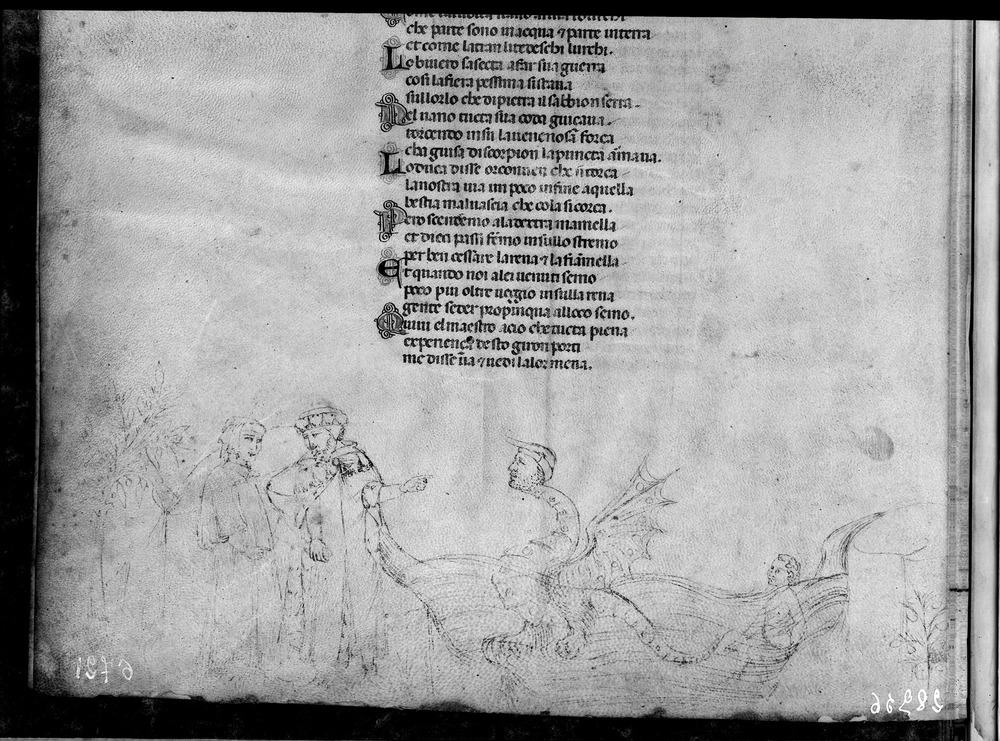 che parte sono inacqua ⁊ parte interra
et come latran litedeschi lurchi.
Lo biuero sasecta afar sua guerra
cosi lafiera pessima sistaua
sullorlo che dipietra il sabbion serra.
Nel uano tucta sua coda guicaua.
torcendo insu lauenenosa forca
cha guisa discorpion lapuncta armaua.
Loduca disse orconuien che si torca
lanostra uia un poco infine aquella
bestia maluascia che cola sicorca.
Pero scendemo aladextra mamella
et dieci passi femo insullo stremo
per ben cessare larena ⁊ la fiãmella
Et quando noi alei uenuti semo
poco piu oltre ueggio insulla rena
gente seder propinqua alloco scemo.
Quiui el maestro acio che tucta piena
experienca desto giron porti
me disse ua ⁊ uedi lalor mena.